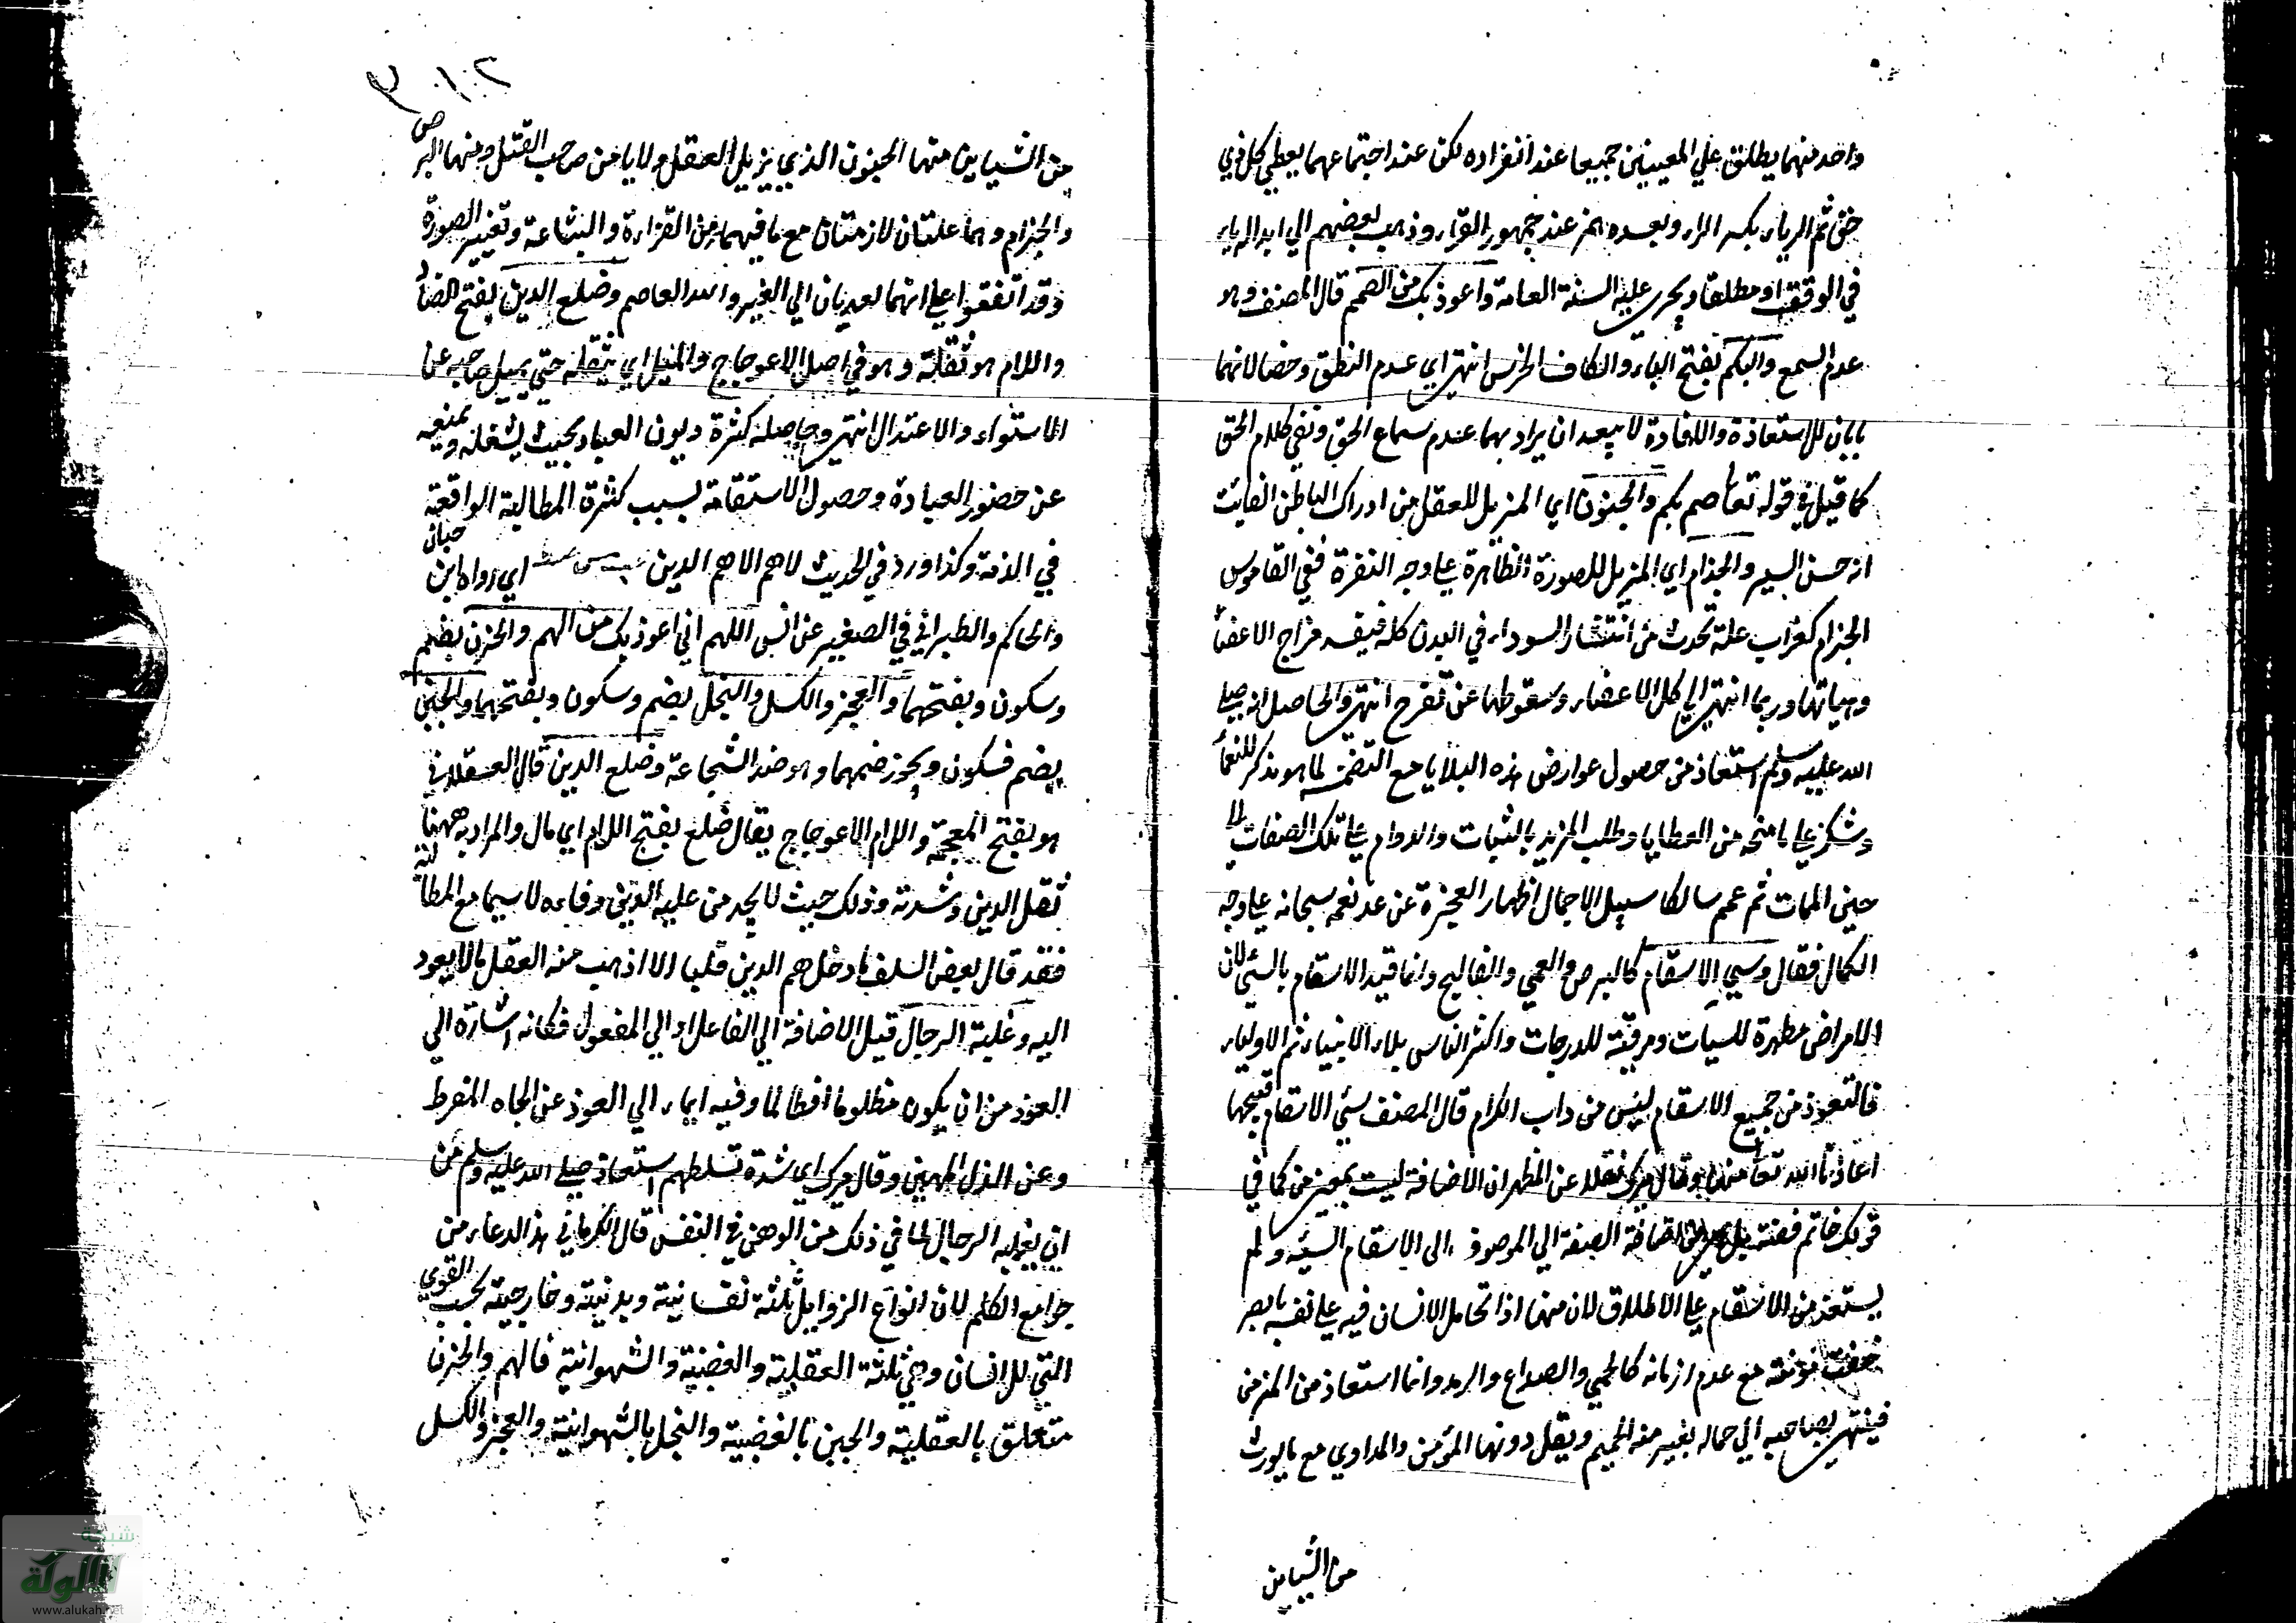 واحد منهما يطلق علي المعينين جميعا عند انفراده لكن عند اجتماعهما يعطي كل ذي
حق ثم الرياء بكسر الراء وبعده همز عند جمهور القراء وذهب بعضهم الي ابداله ياء
في الوقف او مطلقا ويجري عليه السنة العامة واعوذ بك من الصمم قال المصنف وهو
عدم السمع والبكم بفتح الباء والكاف الخرس انتهى اي عدم النطق وخصا لانهما
بابان للاستعاذة والافادة لا يبعد ان يراد بهما عدم سماع الحق ونفي كلام الحق
كما قيل في قوله تعا صم بكم والجنون اي المزيل للعقل من ادراك الباطن الفائت
انه حسن السير والجذام اي المزيل للصورة الظاهرة علي وجه النفرة ففي القاموس
الجذام كغراب علة تحدث من انتشار السوداء في البدن كله فيفسد مزاج الاعضا
وهياتها وربما انتهى الي كل الاعضاء وسقوطها عن تقرح انتهى والحاصل انه صلي
الله عليه وسلم استعاذ من حصول عوارض هذه البلايا مع التضمن لما هو مذكر للنعما
وشكر علي ما منحه من العطايا وطلب المزيد بالثبات والدوام علي تلك الصفات الا
حين الممات ثم عمم سالكا سبيل الاجمال اظهار العجزة عن عد نعمه سبحانه علي وجه
الكمال فقال وسيي الاسقام كالبرص والعمي والفالج وانما قيد الاسقام بالسيئ لان
الامراض مطهرة للسيات ومرقية للدرجات واكثر الناس بلاء الانبياء ثم الاولياء
فالتعوذ من جميع الاسقام ليس من داب الكرام قال المصنف سيئ الاسقام قبيحها
اعاذنا الله تعا منها وقال ميرك نقلا عن المظهر ان الاضافة ليست بمعنى من كما في
قولك خاتم فضة بل هي من اضافة الصفة الي الموصوف الى الاسقام السيئه ولم
يستعذ من الاسقام علي الاطلاق لان منها اذا تحامل الانسان فيه علي نفسه بالصبر
خفت مؤنته مع عدم ازمانه كالحمي والصداع والرمد وانما استعاذ من المزمن
فينتهى بصاحبه الي حالة يفير منه الحميم ويقل دونها المؤنس والمداوي مع ما يورث
من الشياين
١٠٢
من الشياين منها الجنون الذي يزيل العقل ولا يامن صاحبه القتل ومنها البرص
والجذام وهما علتان لازمتان مع ما فيهما من القزارة والبشاعة وتغيير الصورة
وقد اتفقوا علي انهما لعديان الي الغير والله العاصم وضلع الدين بفتح الضا
واللام هو ثقلة وهو في اصل الاعوجاج والميل اي يثقله حتي يميل صاحبه عن
الاستواء والاعتدال انتهى وحاصله كثرة ديون العباد بحيث يشغله ويمنعه
عن حضور العبادة وحصول الاستقامة بسبب كثرة المطالبة الواقعة
في الذمة وكذا ورد في الحديث لا هم الا هم الدين اي رواه ابن حبان
والحاكم والطبراني في الصغير عن انس اللهم اني اعوذ بك من الهم والحزن بضم
وسكون وبفتحهما والعجز والكسل والبخل بضم وسكون وبفتحهما والجبن
بضم فسكون ويجوز ضمهما وهو ضد الشجاعة وضلع الدين قال العسقلاني
هو بفتح المعجمة واللام الاعوجاج يقال ضلع بفتح اللام اي مال والمراد به ههنا
ثقل الدين وشدته وذلك حيث لا يجد من عليه الدين وفاءه لا سيما مع المطالبة
فقد قال بعض السلف ما دخل هم الدين قلبا الا اذهب منه العقل ما لا يعود
اليه وغلبة الرجال قيل الاضافة الي الفاعل او الي المفعول فكانه اشارة الي
العوذ من ان يكون مظلوما او ظالما وفيه ايماء الي العوذ عن الجاه المفرط
وعن الذل المهين وقال ميرك اي شدة تسلطهم استعاذ صلي الله عليه وسلم من
ان يغلبه الرجال لما في ذلك من الوهن في النفس قال الكرماني هذا الدعاء من
جوامع الكلم لان انواع الرذايل ثلثة نفسانية وبدنية وخارجية بحسب القوي
التي للانسان وهي ثلثة العقلية والغضبية والشهوانية فالهم والحزن
متعلق بالعقلية والجبن بالغضبية والبخل بالشهوانية والعجز والكسل
شبكة
الألوكة
www.alukah.net